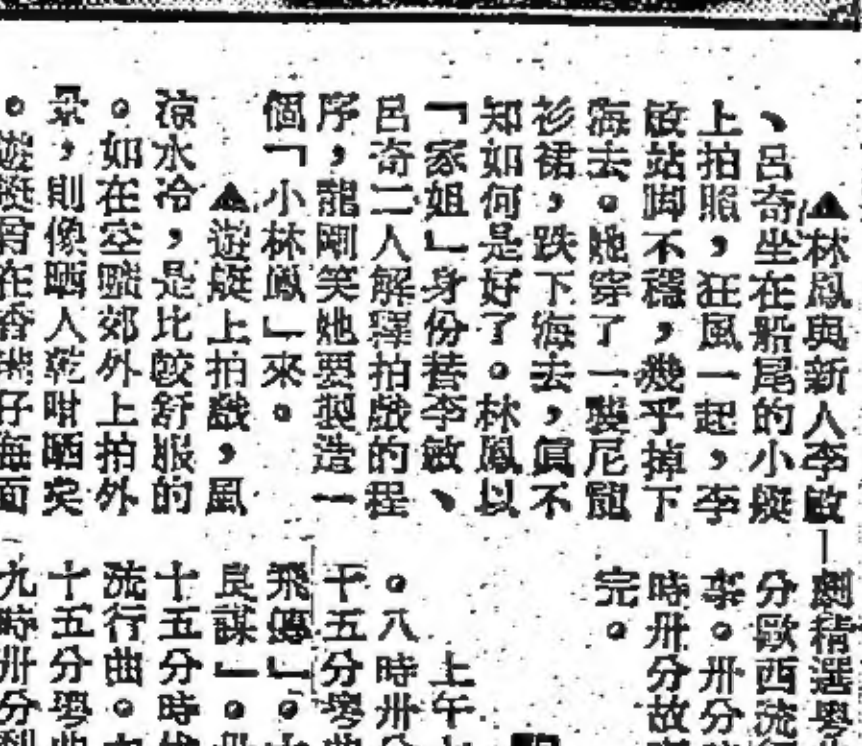 ▲林鳳與新人李敏
、呂奇坐在船尾的小艇
上拍照，狂風一起，李
敏站脚不穩，幾乎掉下
海去。她穿了一襲尼龍
衫裙，跌下海去，眞不
知如何是好了。林鳳以
「家姐」身份替李敏、
呂奇二人解釋拍戲的程
序，龍剛笑她要製造一
個「小林鳳」來。
▲遊艇上拍戲，風
凉水冷，是比較舒服的
。如在空曠郊外上拍外
景，則像晒人乾咁晒矣
。遊艇
在香
仔海面
劇精選粤
分歐西流
李。卅分
時卅分故
完。
上午
。八時卅分
十五分粤曲
飛
」。
良謀」。
十五分時
流行曲。
十五分粤曲
九時卅分